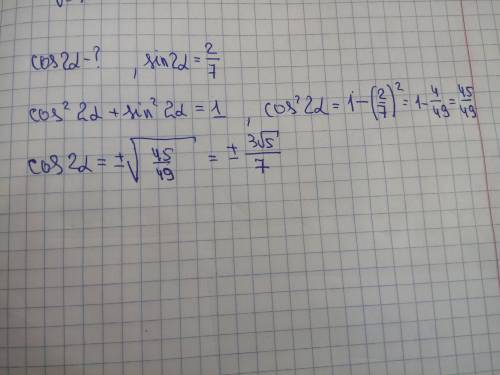 cos2α-? , sin2α = 2/7
cos² 2α + sin² 2α = 1 , cos² 2α = 1 - (2/7)² = 1 - 4/49 = 45/49
cos 2α = ±√(45/49) = ± 3√5/7